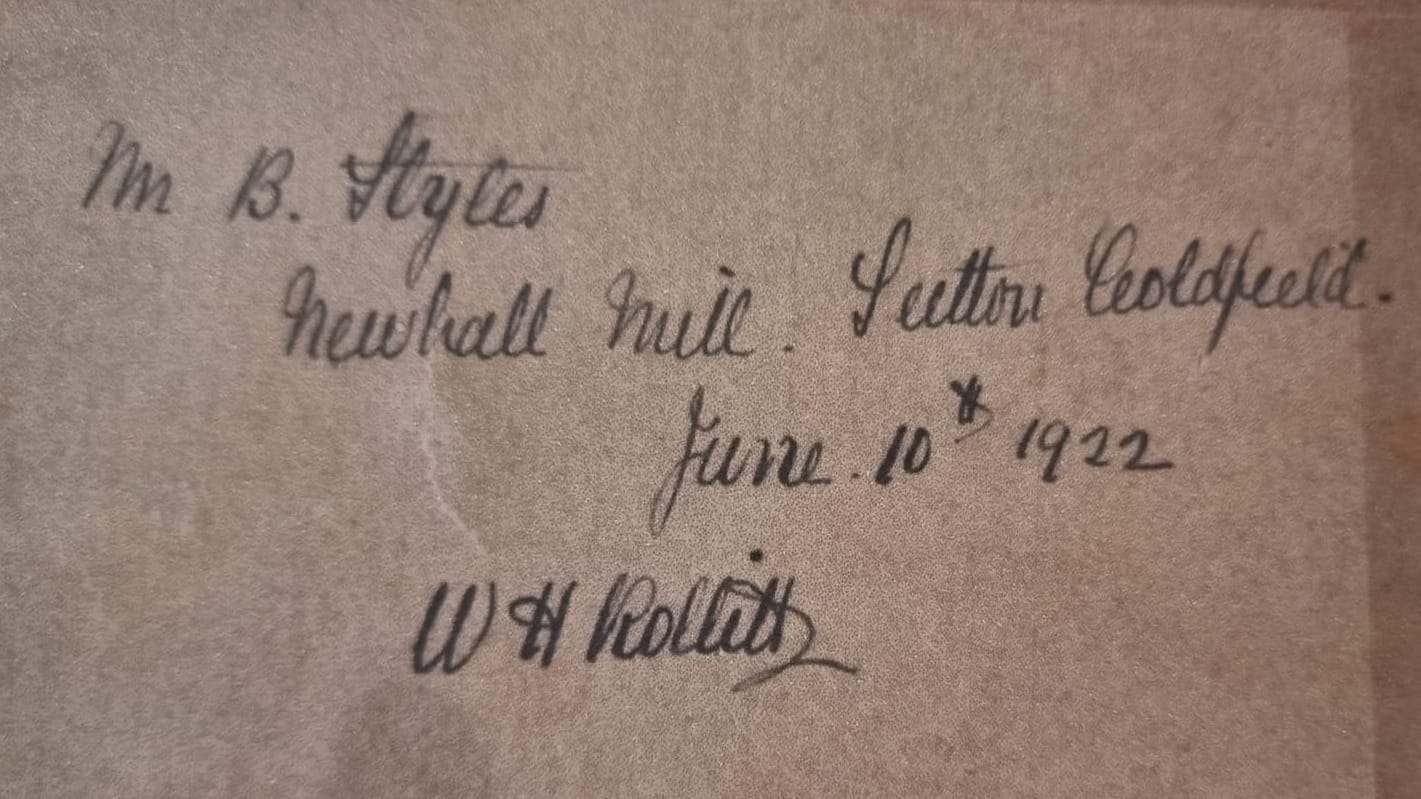 Mr B. Styles
Newhall Mill. Sutton Coldfield.
June. 10th 1922
W H Rollitt